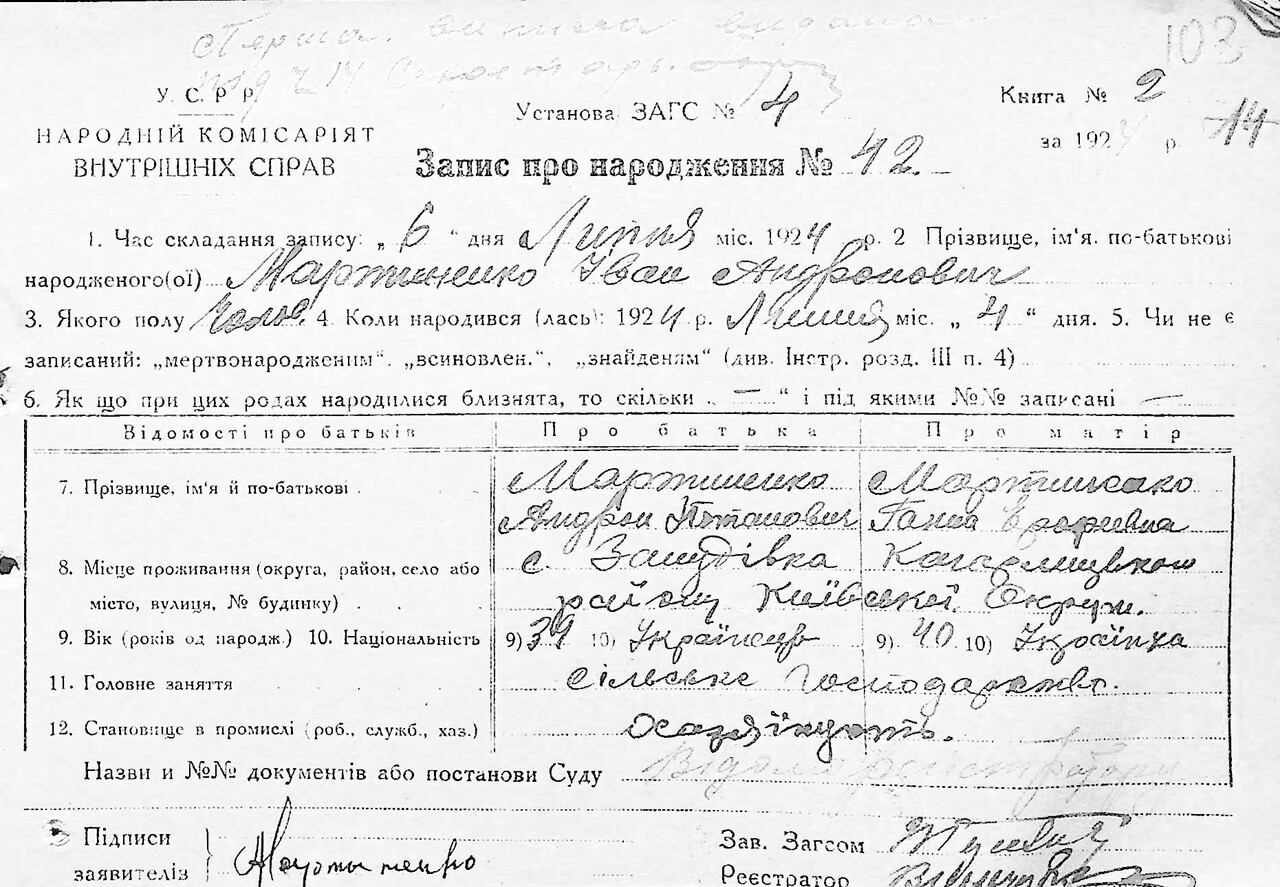 Перша виписка видана
103
У. С. Р Р.
НАРОДНІЙ КОМІСАРІЯТ
ВНУТРІШНІХ СПРАВ
Установа ЗАГС № 4
Книга № 2
за 1924 р. 14
Запис про народження № 42.
1. Час складання запису: „ 6 “ дня Липня міс. 1924 р. 2 Прізвище, ім'я. по-батькові
народженого(ої) Мартиненко Іван Андронович
3. Якого полу Чолов. 4. Коли народився (лась): 1924 р. Липня міс. „ 4 “ дня. 5. Чи не є
записаний: „мертвонародженим“. „всиновлен.“, „знайденям“ (див. Інстр. розд. III п. 4)
6. Як що при цих родах народилися близнята, то скільки „ — “ і під якими №№ записані —
Відомості про батьків Про батька Про матір
7. Прізвище, ім'я й по-батькові Мартиненко Мартиненко
Андрон Потапович Ганна Єрофіївна
8. Місце проживання (округа, район, село або с. Кагарлицького
місто, вулиця, № будинку) району Київської Округи.
9. Вік (років од народж.) 10. Національність 9) 39 10) Українець 9) 40 10) Українка
11. Головне заняття сільське господарство.
12. Становище в промислі (роб., службв., хаз.)
Назви и №№ документів або постанови Суду
Підписи
заявителів Мартиненко
Зав. Загсом
Реєстратор